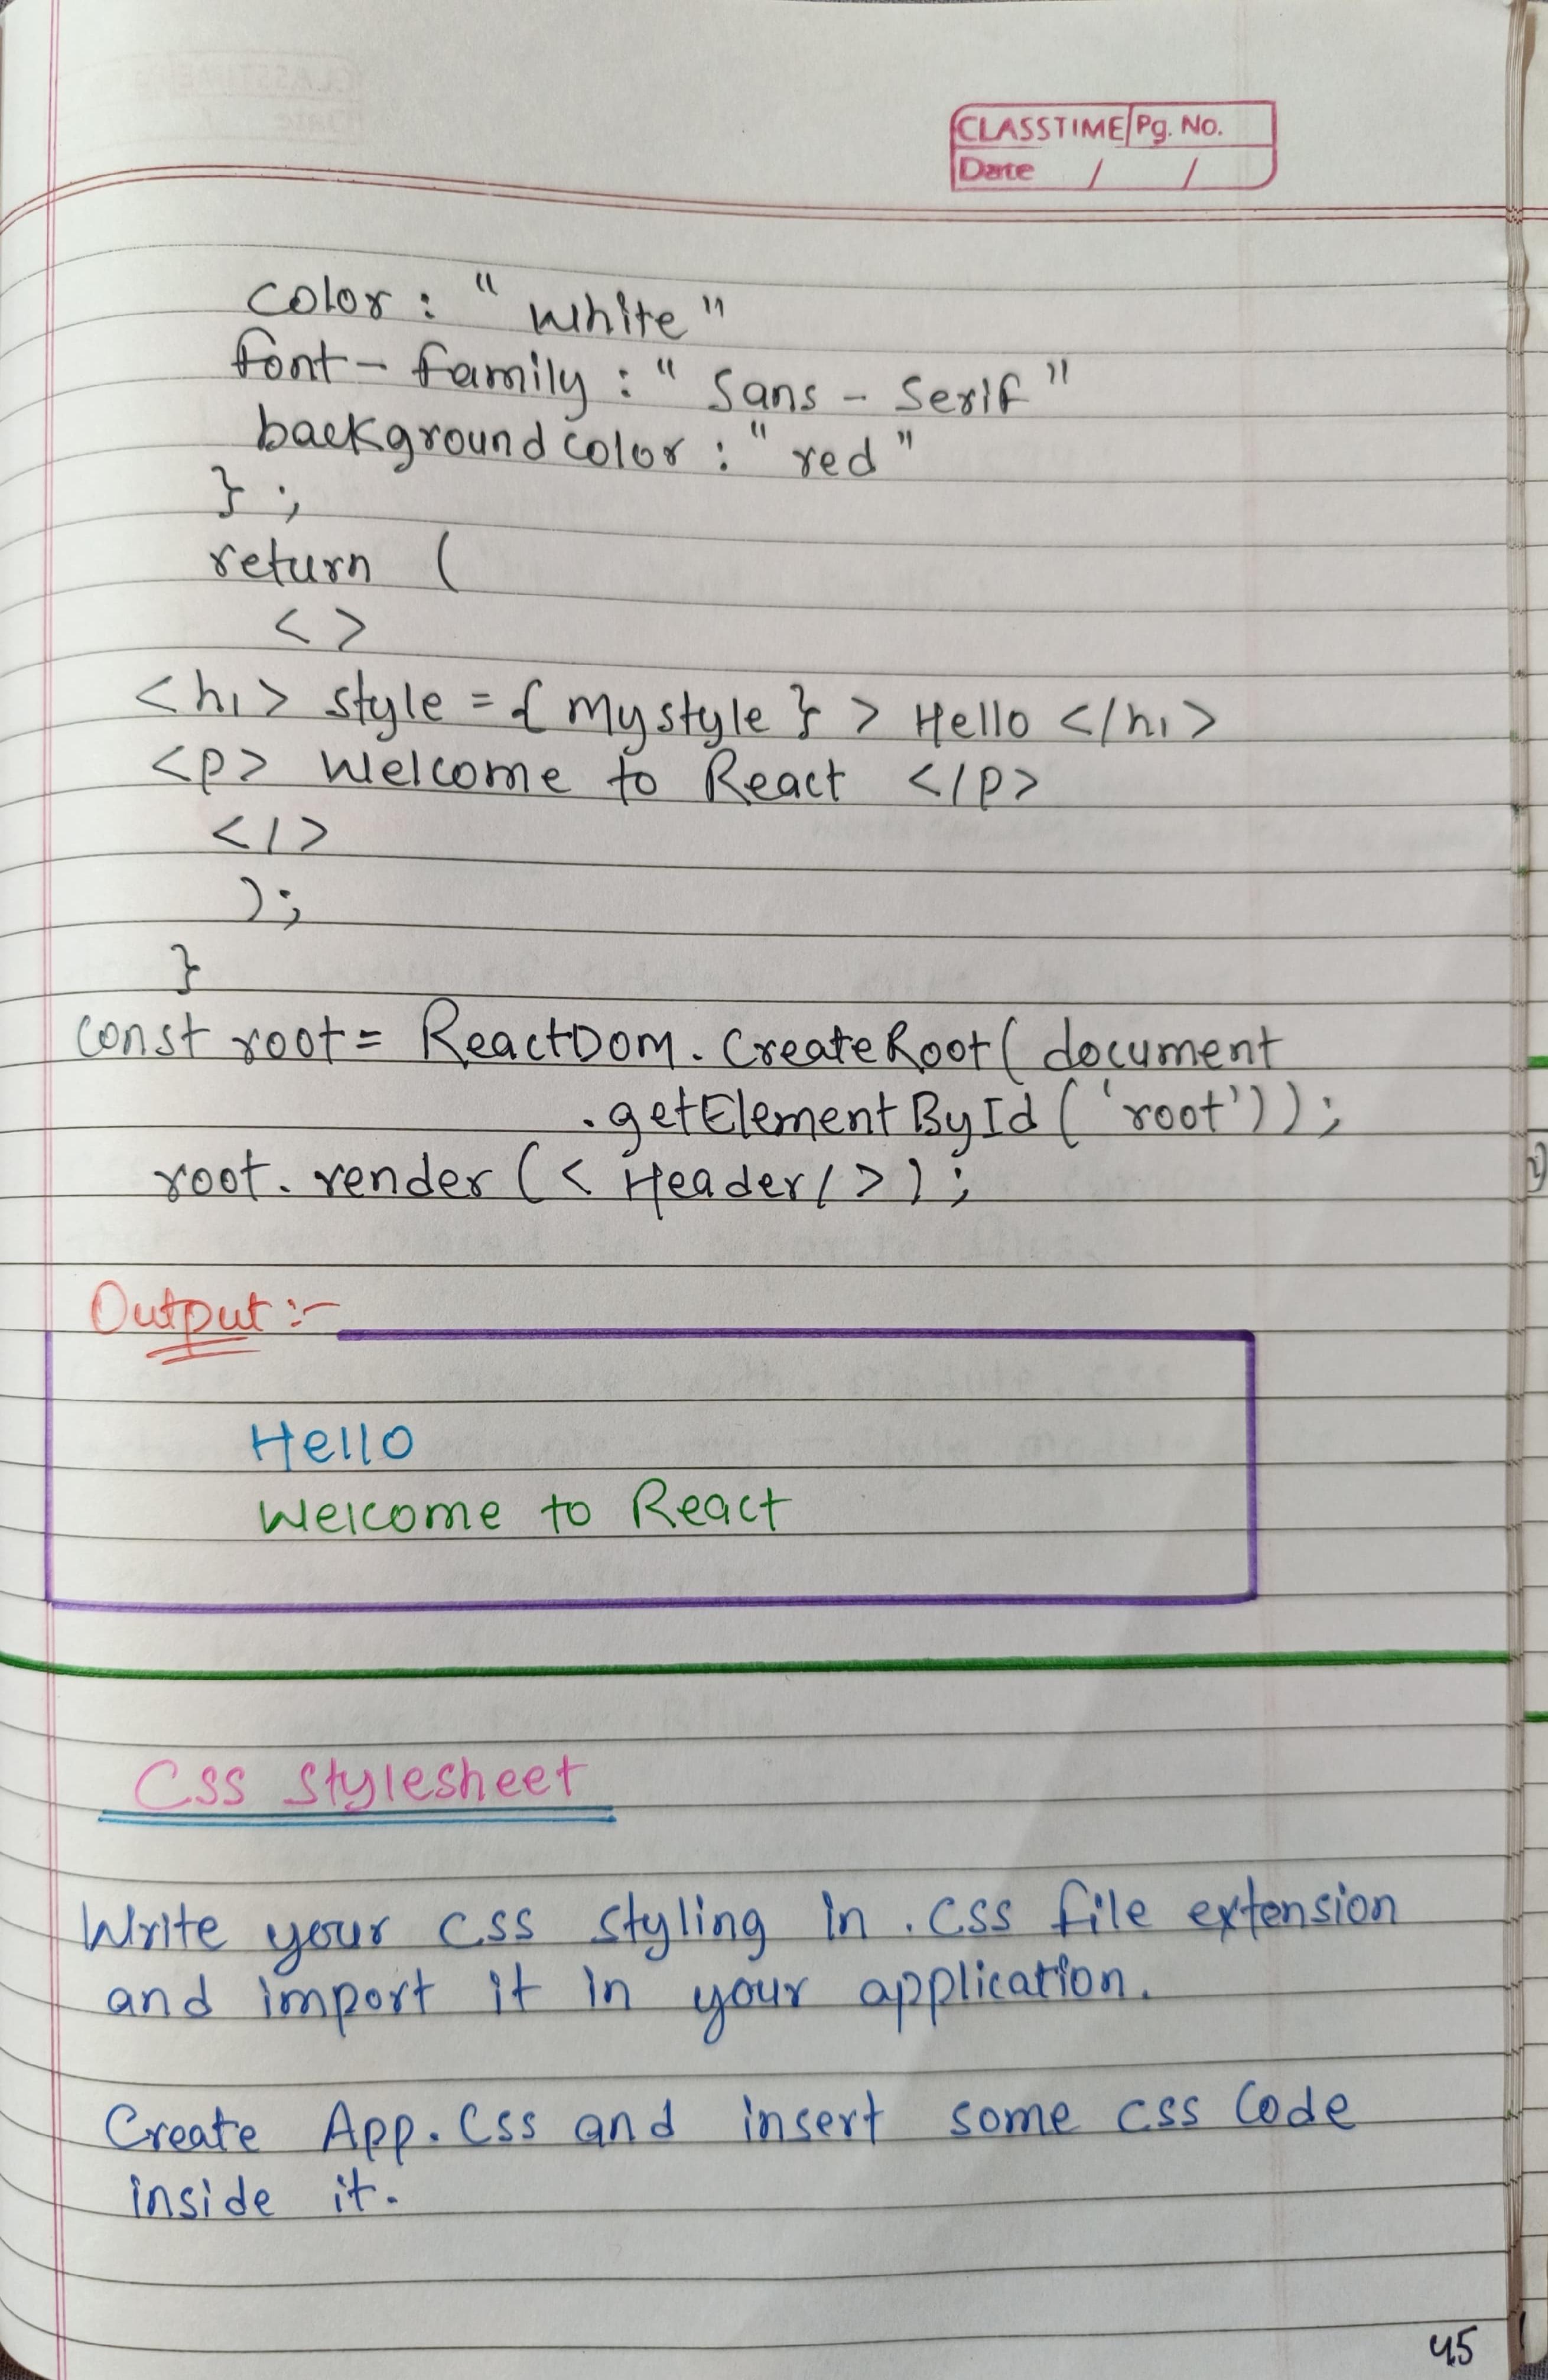 CLASSTIME Pg. No.
Date / /
color : " white "
font - family : " Sans - Serif "
background color : " red "
} ;
return (
< >
<h1> style = { mystyle } > Hello </h1>
<p> Welcome to React </p>
</>
);
}
const root = ReactDom . CreateRoot ( document
. getElement By Id ( 'root' ) ) ;
root . render ( < Header / > ) ;
Output :-
Hello
Welcome to React
Css Stylesheet
Write your css styling in . css file extension
and import it in your application.
Create App. Css and insert some css Code
inside it.
45